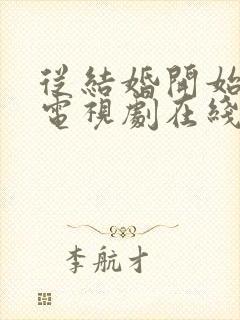 從結婚開始
電視劇在綫
李航才